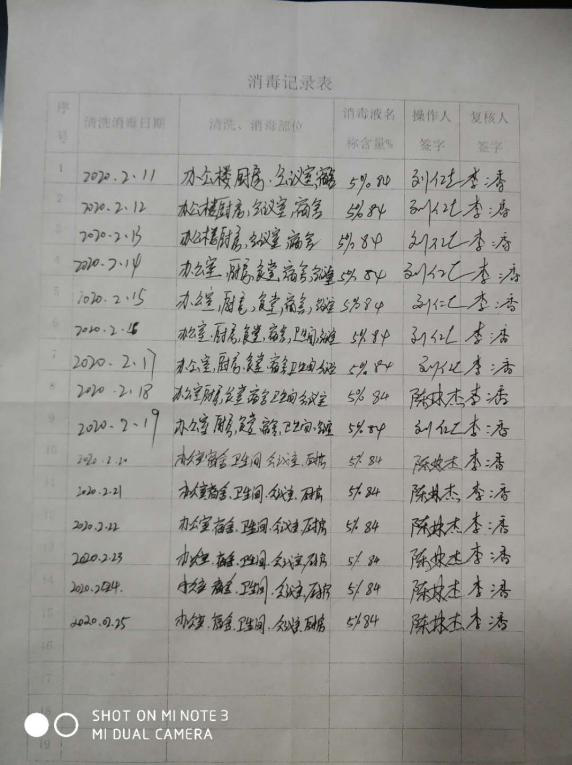 消毒记录表
序号 清洗消毒日期 清洗、消毒部位 消毒液名称含量% 操作人签字 复核人签字
1 2020.2.11 办公楼厨房、会议室,宿舍 5% 84 刘仁 李清
2 2020.2.12 办公楼厨房,会议室,宿舍 5% 84 刘仁 李清
3 2020.2.13 办公楼厨房,会议室,宿舍 5% 84 刘仁 李清
4 2020.2.14 办公室,厨房,食堂,宿舍,会议室 5% 84 刘仁 李清
5 2020.2.15 办公室,厨房,食堂,宿舍,会议室 5% 84 刘仁 李清
6 2020.2.16 办公室,厨房,食堂,宿舍,卫生间,会议室 5% 84 刘仁 李清
7 2020.2.17 办公室,厨房,食堂,宿舍卫生间会议室 5% 84 刘仁 李清
8 2020.2.18 办公室厨房,食堂宿舍卫生间会议室 5% 84 陈林杰 李清
9 2020.2.19 办公室厨房,食堂,宿舍,卫生间,会议室 5% 84 刘仁 李清
10 2020.2.20 办公室宿舍、卫生间、会议室、厨房 5% 84 陈林杰 李清
11 2020.2.21 办公室宿舍、卫生间、会议室、厨房 5% 84 陈林杰 李清
12 2020.2.22 办公室宿舍、卫生间、会议室、厨房 5% 84 陈林杰 李清
13 2020.2.23 办公室、宿舍、卫生间、会议室、厨房 5% 84 陈林杰 李清
14 2020.2.24. 办公室、宿舍、卫生间、会议室、厨房 5% 84 陈林杰 李清
15 2020.02.25 办公室、宿舍、卫生间、会议室、厨房 5% 84 陈林杰 李清
16
17
18
19
SHOT ON MI NOTE 3
MI DUAL CAMERA